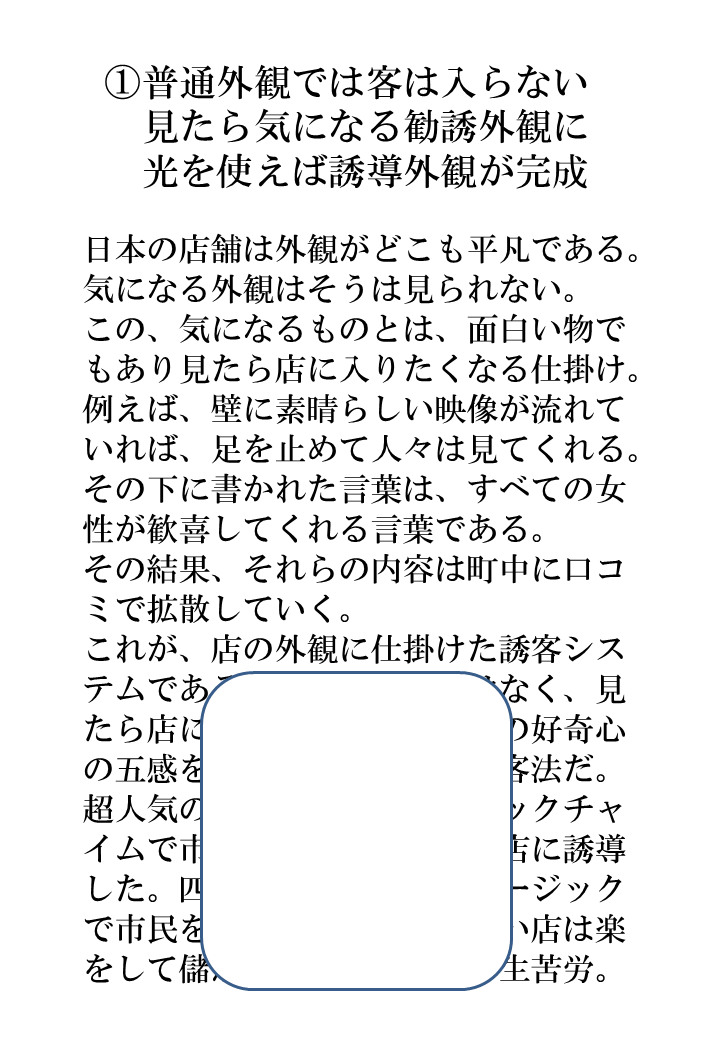 ①普通外観では客は入らない
見たら気になる勧誘外観に
光を使えば誘導外観が完成
日本の店舗は外観がどこも平凡である。
気になる外観はそうは見られない。
この、気になるものとは、面白い物で
もあり見たら店に入りたくなる仕掛け。
例えば、壁に素晴らしい映像が流れて
いれば、足を止めて人々は見てくれる。
その下に書かれた言葉は、すべての女
性が歓喜してくれる言葉である。
その結果、それらの内容は町中に口コ
ミで拡散していく。
これが、店の外観に仕掛けた誘客シス
テムであ なく、見
たら店に の好奇心
の五感を 客法だ。
超人気の ックチャ
イムで市 店に誘導
した。四 ージック
で市民を い店は楽
をして儲 生苦労。